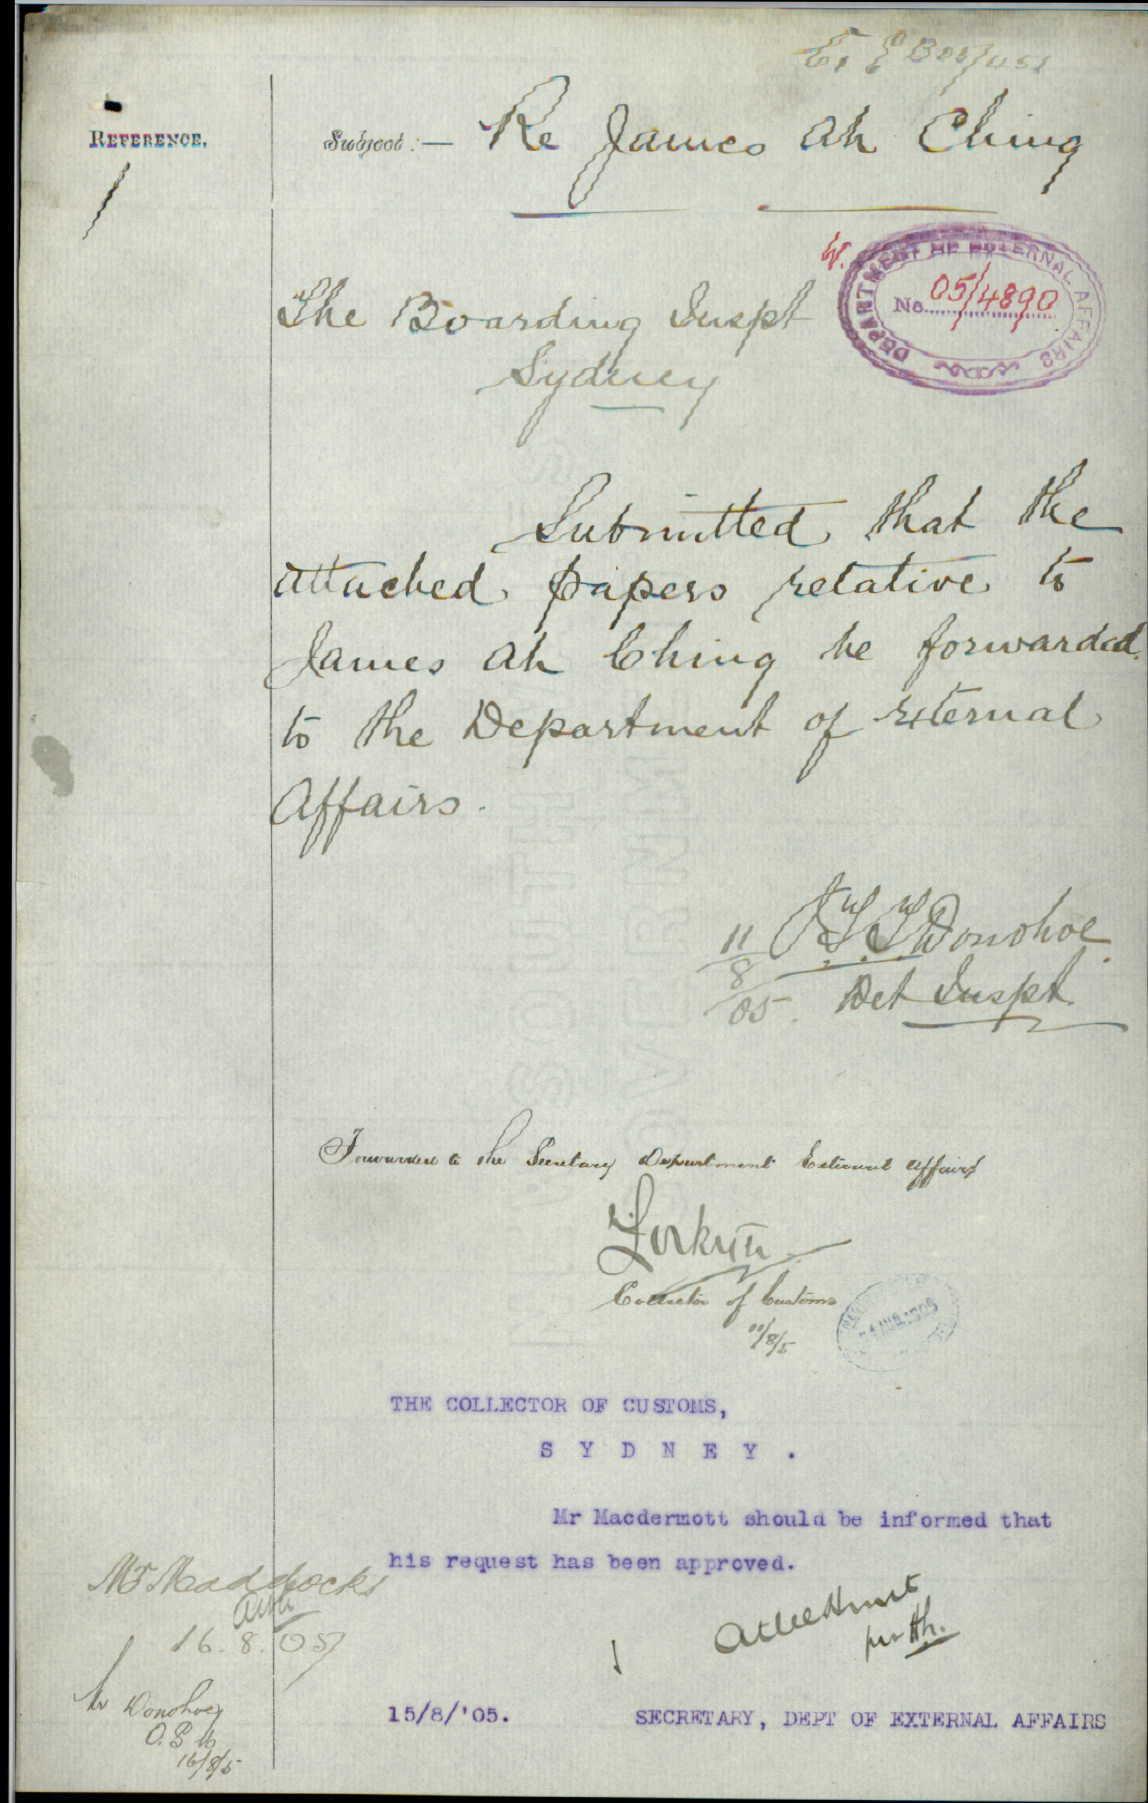 REFERENCE.
Subject:— Re James Ah Ching
DEPARTMENT OF EXTERNAL AFFAIRS
No. 05/4890
The Boarding Inspt
Sydney
Submitted that the
attached papers relative to
James Ah Ching be forwarded
to the Department of External
Affairs.
Donohoe
Det Inspt.
11/8/05.
Forwarded to the Secretary Department External Affairs
Collector of Customs
11/8/5
THE COLLECTOR OF CUSTOMS,
SYDNEY.
Mr Macdermott should be informed that
his request has been approved.
Atlee Hunt
per
15/8/'05.
SECRETARY, DEPT OF EXTERNAL AFFAIRS
Mr Maddocks
16.8.05
Mr Donohoe
16/8/5